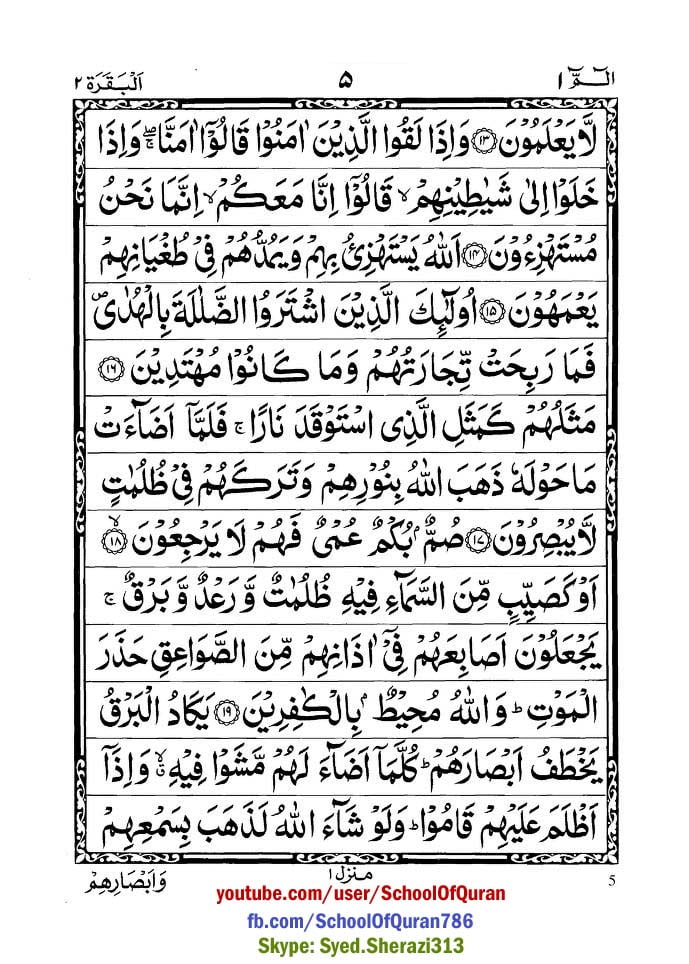 الٓمّٓ ١
۵
اَلْبَقَرَة ٢
لَّا يَعْلَمُوْنَ ﴿١٣﴾ وَاِذَا لَقُوا الَّذِيْنَ اٰمَنُوْا قَالُوْۤا اٰمَنَّا ۖۚ وَاِذَا
خَلَوْا اِلٰى شَيٰطِيْنِهِمْ ۙ قَالُوْۤا اِنَّا مَعَكُمْ ۙ اِنَّمَا نَحْنُ
مُسْتَهْزِءُوْنَ ﴿١٤﴾ اَللّٰهُ يَسْتَهْزِئُ بِهِمْ وَيَمُدُّهُمْ فِيْ طُغْيَانِهِمْ
يَعْمَهُوْنَ ﴿١٥﴾ اُولٰٓئِكَ الَّذِيْنَ اشْتَرَوُا الضَّلٰلَةَ بِالْهُدٰى ۪
فَمَا رَبِحَتْ تِّجَارَتُهُمْ وَمَا كَانُوْا مُهْتَدِيْنَ ﴿١٦﴾
مَثَلُهُمْ كَمَثَلِ الَّذِى اسْتَوْقَدَ نَارًا ۚ فَلَمَّاۤ اَضَآءَتْ
مَا حَوْلَهٗ ذَهَبَ اللّٰهُ بِنُوْرِهِمْ وَتَرَكَهُمْ فِيْ ظُلُمٰتٍ
لَّا يُبْصِرُوْنَ ﴿١٧﴾ صُمٌّۢ بُكْمٌ عُمْيٌ فَهُمْ لَا يَرْجِعُوْنَ ﴿١٨﴾ ۙ
اَوْ كَصَيِّبٍ مِّنَ السَّمَآءِ فِيْهِ ظُلُمٰتٌ وَّرَعْدٌ وَّبَرْقٌ ۚ
يَجْعَلُوْنَ اَصَابِعَهُمْ فِيْۤ اٰذَانِهِمْ مِّنَ الصَّوَاعِقِ حَذَرَ
الْمَوْتِ ؕ وَاللّٰهُ مُحِيْطٌۢ بِالْكٰفِرِيْنَ ﴿١٩﴾ يَكَادُ الْبَرْقُ
يَخْطَفُ اَبْصَارَهُمْ ؕ كُلَّمَاۤ اَضَآءَ لَهُمْ مَّشَوْا فِيْهِ ۙۗ وَاِذَاۤ
اَظْلَمَ عَلَيْهِمْ قَامُوْا ؕ وَلَوْ شَآءَ اللّٰهُ لَذَهَبَ بِسَمْعِهِمْ
5
منزل ١
وَاَبْصَارِهِمْ
youtube.com/user/SchoolOfQuran
fb.com/SchoolOfQuran786
Skype: Syed.Sherazi313